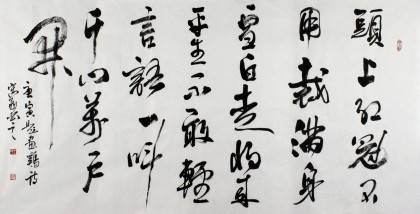 頭上紅冠不
用裁滿身
雪白走將來
平生不敢輕
言語一叫
千門萬戶
開
唐寅題畫雞詩